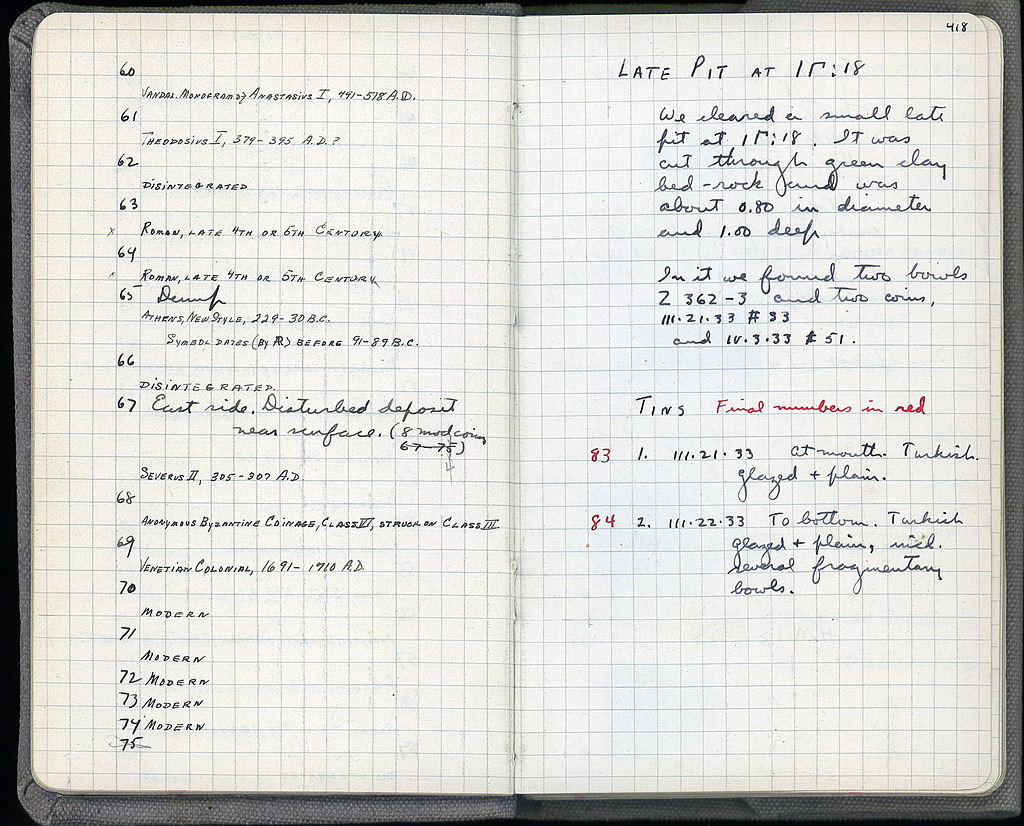 60
VANDAL. MONOGRAM of ANASTASIUS I, 491-518 A.D.
61
THEODOSIUS I, 379-395 A.D.?
62
DISINTEGRATED
63
x ROMAN, LATE 4TH OR 5TH CENTURY.
64
x ROMAN, LATE 4TH OR 5TH CENTURY
65 Dump
ATHENS, NEW STYLE, 229-30 B.C.
SYMBOL DATES (BY Æ) BEFORE 91-89 B.C.
66
DISINTEGRATED.
67 East side. Disturbed deposit
near surface. (8 mod coins
67-75)
SEVERUS II, 305-307 A.D.
68
ANONYMOUS BYZANTINE COINAGE, CLASS VI, STRUCK ON CLASS III
69
VENETIAN COLONIAL, 1691-1710 A.D.
70
MODERN
71
MODERN
72 MODERN
73 MODERN
74 MODERN
75
418
LATE PIT AT 1Γ:18
We cleared a small late
pit at 1Γ:18. It was
cut through green clay
bed-rock and was
about 0.80 in diameter
and 1.00 deep
In it we found two bowls
Z 362-3 and two coins,
III.21.33 # 33
and IV.3.33 # 51.
TINS Final numbers in red
83 1. III.21.33 At mouth. Turkish.
glazed + plain.
84 2. III.22.33 To bottom. Turkish
glazed + plain, incl.
several fragmentary
bowls.